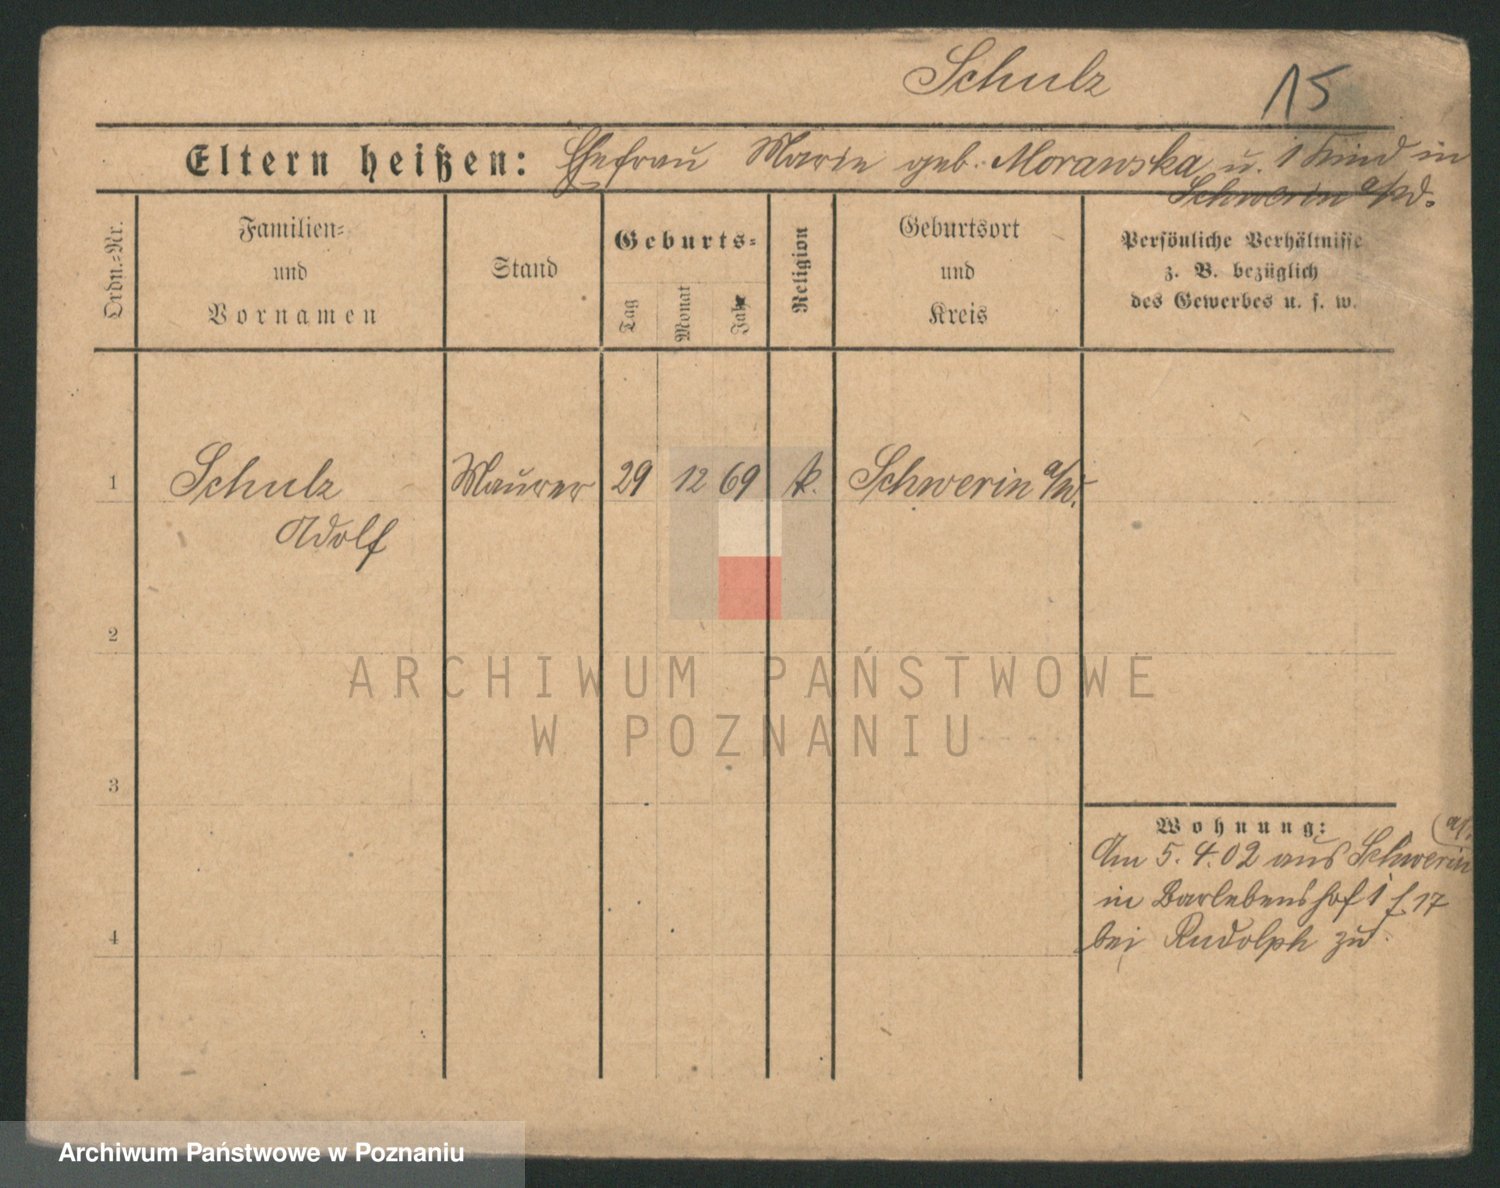 Schulz
15
Eltern heißen: Ehefrau Marie geb. Morawska u. 1 Kind in
Schwerin a/Wd.
Ordn.-Nr.
Familien-
und
Vornamen
Stand
Geburts-
Tag
Monat
Jahr
Religion
Geburtsort
und
Kreis
Persönliche Verhältnisse
z. B. bezüglich
des Gewerbes u. s. w.
1 Schulz Maurer 29 12 69 k. Schwerin a/W.
Adolf
2
3
4
Wohnung:
Am 5.4.02 aus Schwerin
in Barlebenshof 1 17
bei Rudolph zu
ARCHIWUM PAŃSTWOWE
W POZNANIU
Archiwum Państwowe w Poznaniu